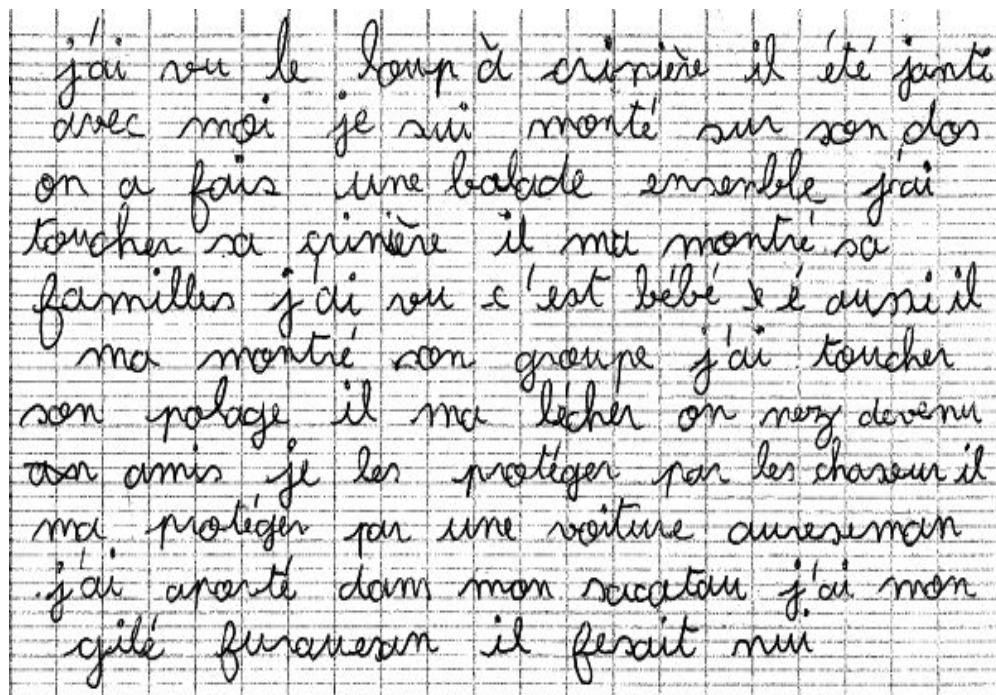 j'ai vu le loup à crinière il été janti
avec moi je sui monté sur son dos
on a fais une balade ensenble j'ai
toucher sa crinière il ma montré sa
familles j'ai vu c'est bébé é aussi il
ma montré son groupe j'ai toucher
son polage il ma lécher on nez devenu
amis je les protéger par les chaseur il
ma protéger par une voiture aureseman
j'ai aporté dans mon sacatau j'ai mon
gilé il fesait nui